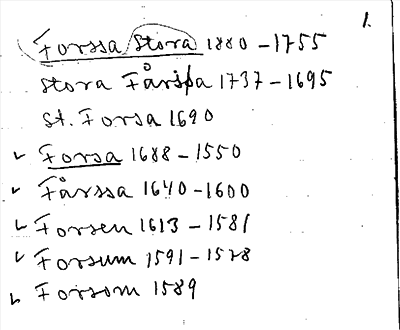 1.
Forssa Stora 1880-1755
Stora Fårssa 1737-1695
St. Forsa 1690
Forsa 1688-1550
Fårssa 1640-1600
Forsen 1613-1581
Forsum 1591-1528
Forsom 1589